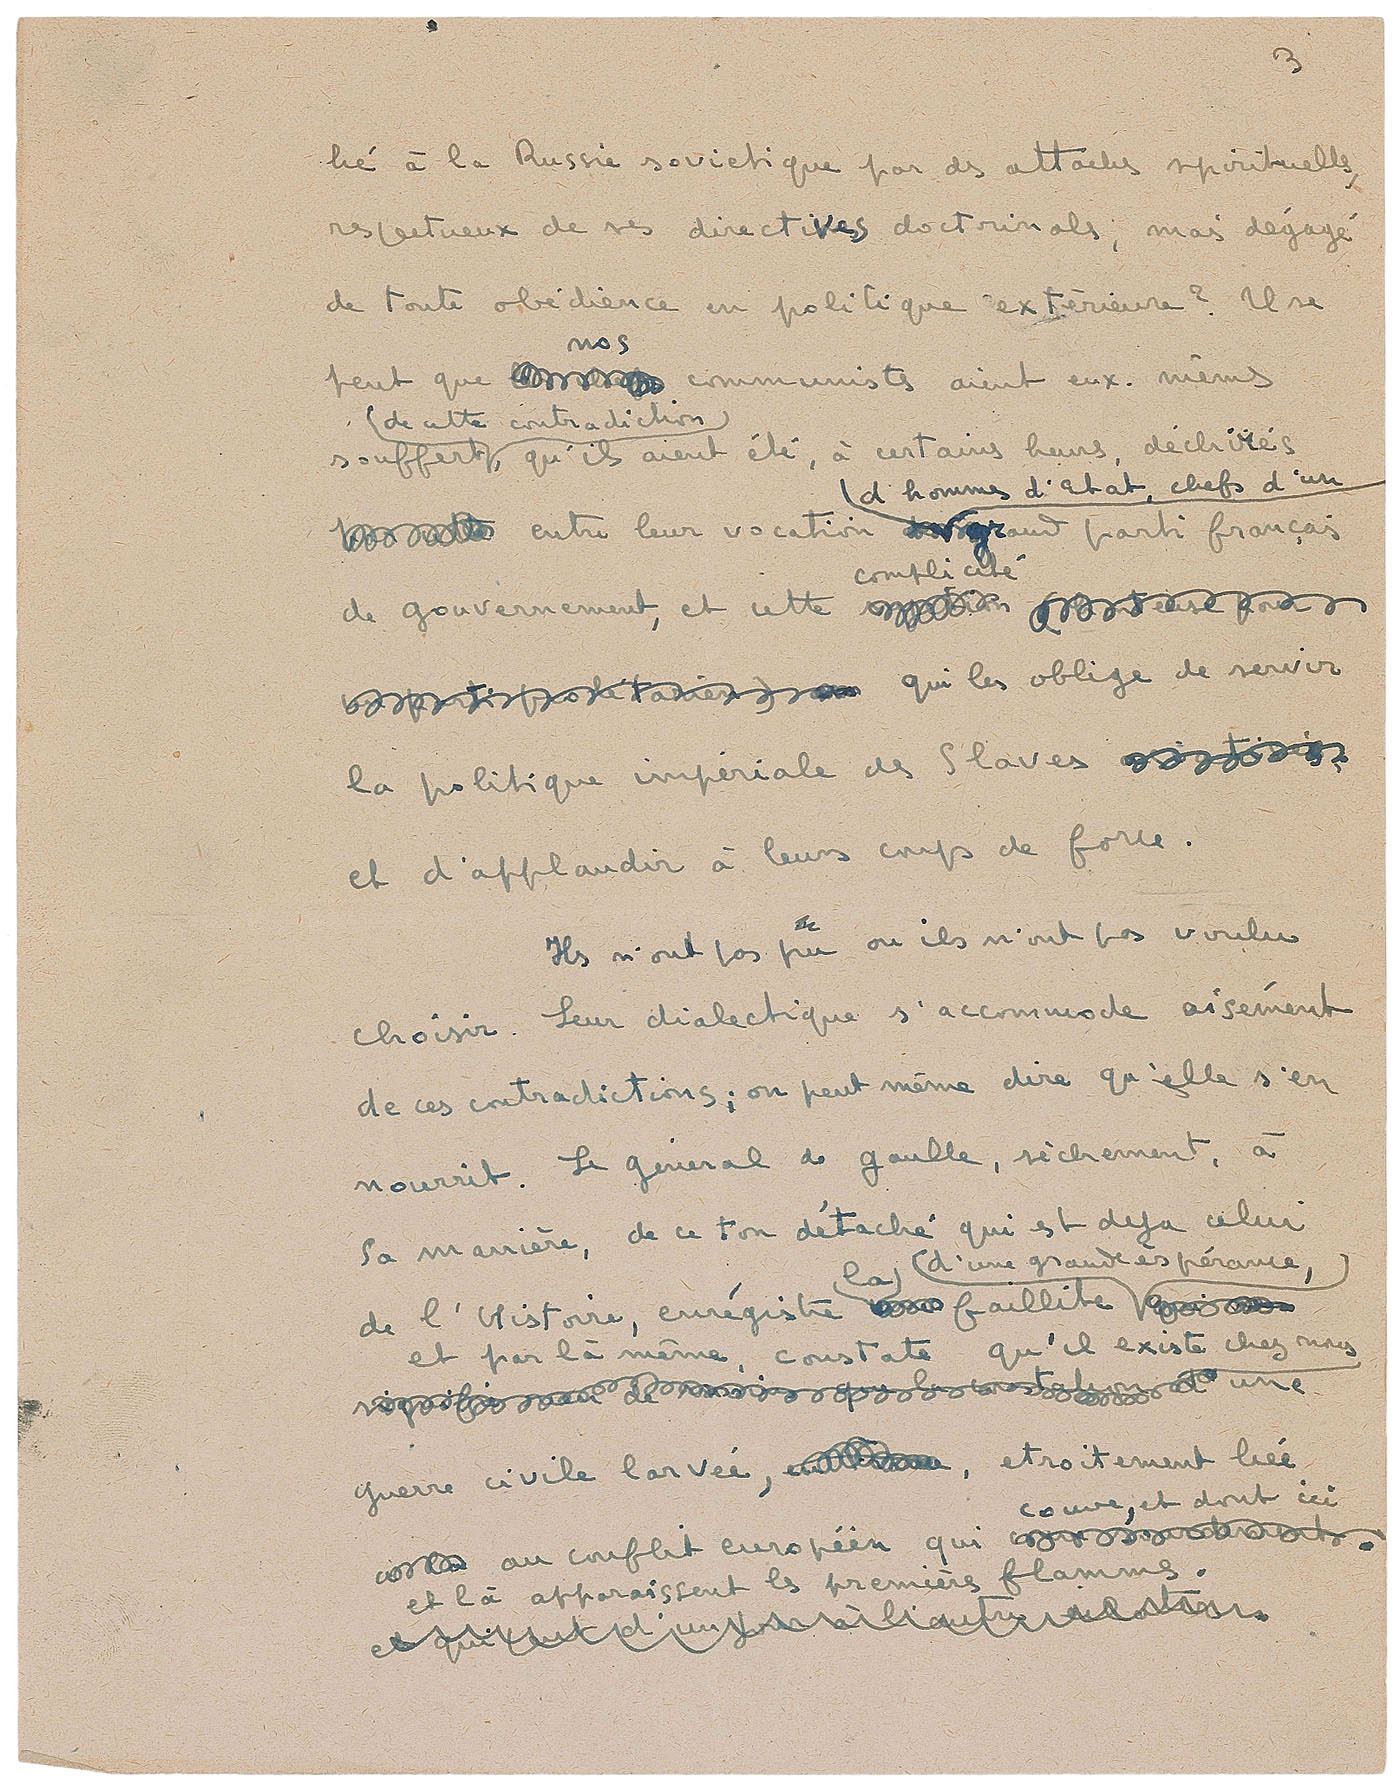 3
lié à la Russie soviétique par des attaches spirituelles,
respectueux de ses directives doctrinales, mais dégagé
de toute obédience en politique extérieure? Il se
nos
peut que communistes aient eux-mêmes
(de cette contradiction)
souffert, qu'ils aient été, à certaines heures, déchirés
(d'hommes d'Etat, chefs d'un
entre leur vocation grand parti français
complicité
de gouvernement, et cette
qui les oblige de servir
la politique impériale des Slaves
et d'applaudir à leurs coups de force.
Ils n'ont pas pu ou ils n'ont pas voulu
choisir. Leur dialectique s'accommode aisément
de ces contradictions; on peut même dire qu'elle s'en
nourrit. Le général de gaulle, sèchement, à
sa manière, de ce ton détaché qui est deja celui
la (d'une grande espérance,)
de l'Histoire, enrégistre faillite
et par là même, constate qu'il existe chez nous
une
guerre civile larvée, , etroitement liée
couve, et dont ici
au conflit européen qui
et là apparaissent les premières flammes.